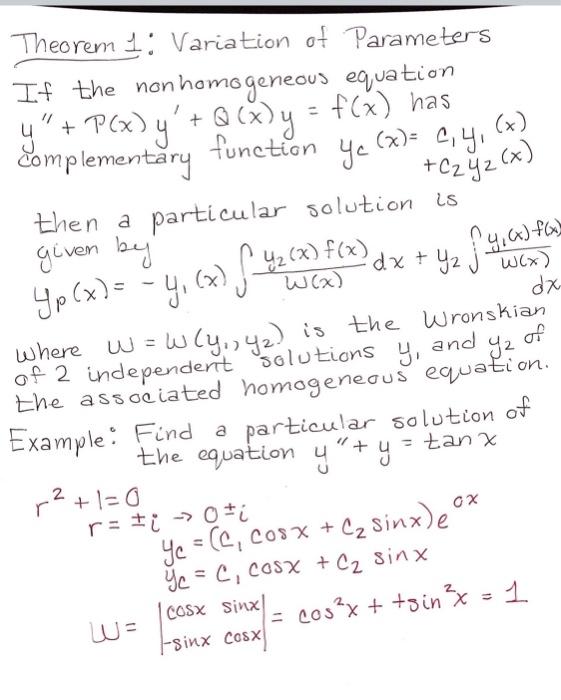 Theorem 1: Variation of Parameters
If the nonhomogeneous equation
y'' + P(x) y' + Q(x) y = f(x) has
complementary function y_c(x) = c₁y₁(x)
+ c₂y₂(x)
then a particular solution is
given by
y_p(x) = - y₁(x) ∫ y₂(x) f(x) / W(x) dx + y₂ ∫ y₁(x) f(x) / W(x)
dx
where W = W(y₁, y₂) is the Wronskian
of 2 independent solutions y₁ and y₂ of
the associated homogeneous equation.
Example: Find a particular solution of
the equation y'' + y = tan x
r² + 1 = 0
r = ±i → 0 ± i
y_c = (C₁ cosx + C₂ sinx)e^{0x}
y_c = C₁ cosx + C₂ sinx
W = |cosx sinx| = cos²x + +sin²x = 1
|-sinx cosx|